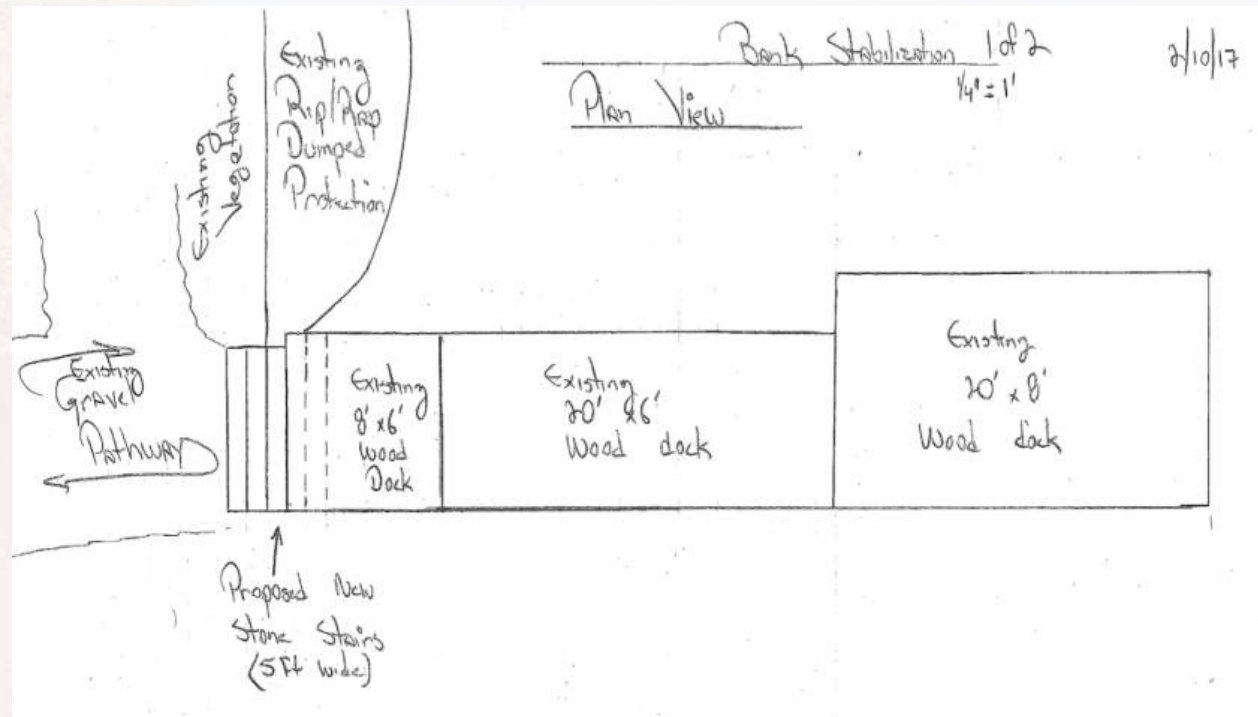 Bank Stabilization 1 of 2
1/4" = 1'
2/10/17
Plan View
Existing
Vegetation
Existing
Rip/Rap
Dumped
Protection
Existing
Gravel
Pathway
Existing
8' x 6'
Wood
Dock
Existing
20' x 6'
Wood dock
Existing
20' x 8'
Wood dock
Proposed New
Stone Stairs
(5 Ft wide)